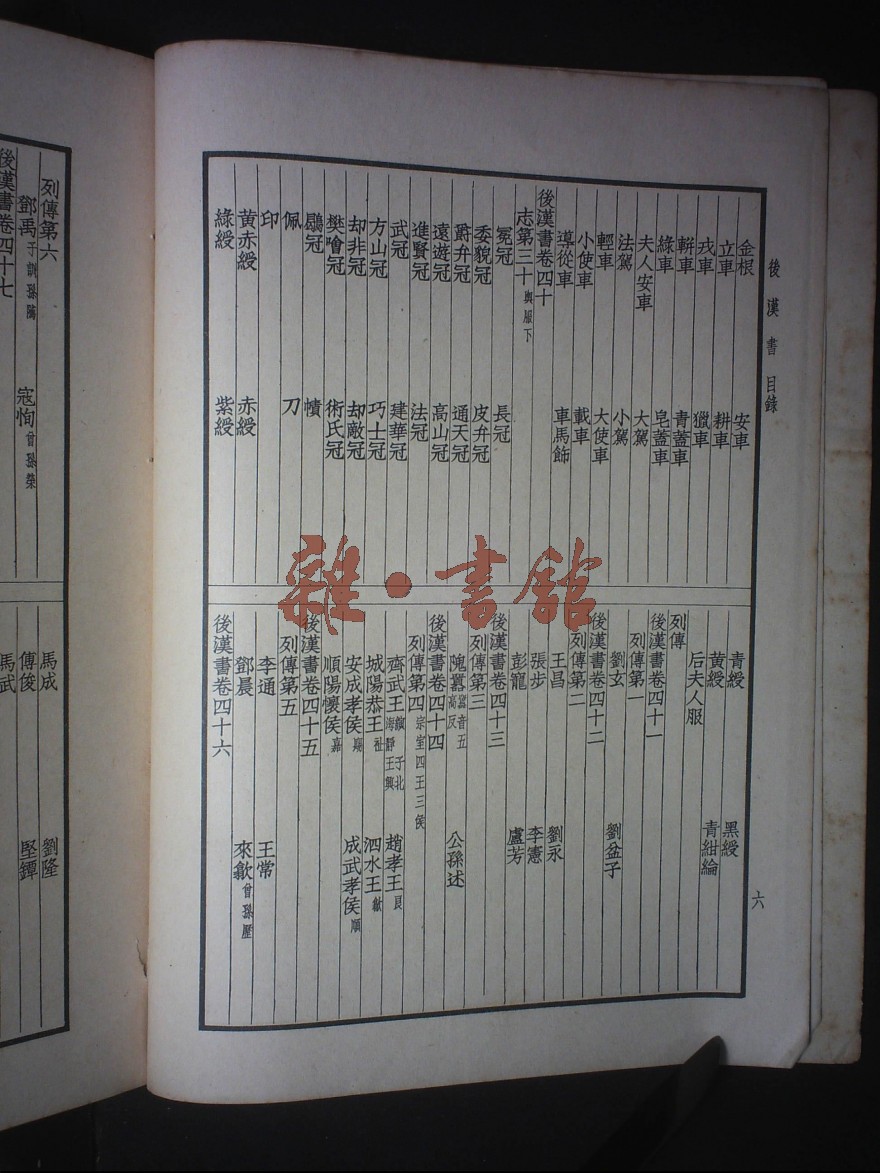 後漢書目錄
六
金根 安車
立車 耕車
戎車 獵車
輧車 青蓋車
綠車 皂蓋車
夫人安車 大駕
法駕 小駕
輕車 大使車
小使車 載車
導從車 車馬飾
後漢書卷四十
志第三十 輿服下
冕冠 長冠
委貌冠 皮弁冠
爵弁冠 通天冠
遠遊冠 高山冠
進賢冠 法冠
武冠 建華冠
方山冠 巧士冠
却非冠 却敵冠
樊噲冠 術氏冠
鶡冠 幘
佩 刀
印
黃赤綬 赤綬
綠綬 紫綬
青綬 黑綬
黃綬 青紺綸
后夫人服
列傳
後漢書卷四十一
列傳第一
劉玄 劉盆子
後漢書卷四十二
列傳第二
王昌 劉永
張步 李憲
彭寵 盧芳
後漢書卷四十三
列傳第三
隗囂 囂音五高反 公孫述
後漢書卷四十四
列傳第四 宗室四王三侯
齊武王 縯 子北海靜王興 趙孝王 良
城陽恭王 祉 泗水王 歙
安成孝侯 賜 成武孝侯 順
順陽懷侯 嘉
後漢書卷四十五
列傳第五
李通 王常
鄧晨 來歙 曾孫歷
後漢書卷四十六
列傳第六
鄧禹 子訓 孫騭 寇恂 曾孫榮
後漢書卷四十七
馬成 劉隆
傅俊 堅鐔
馬武
雜·書館